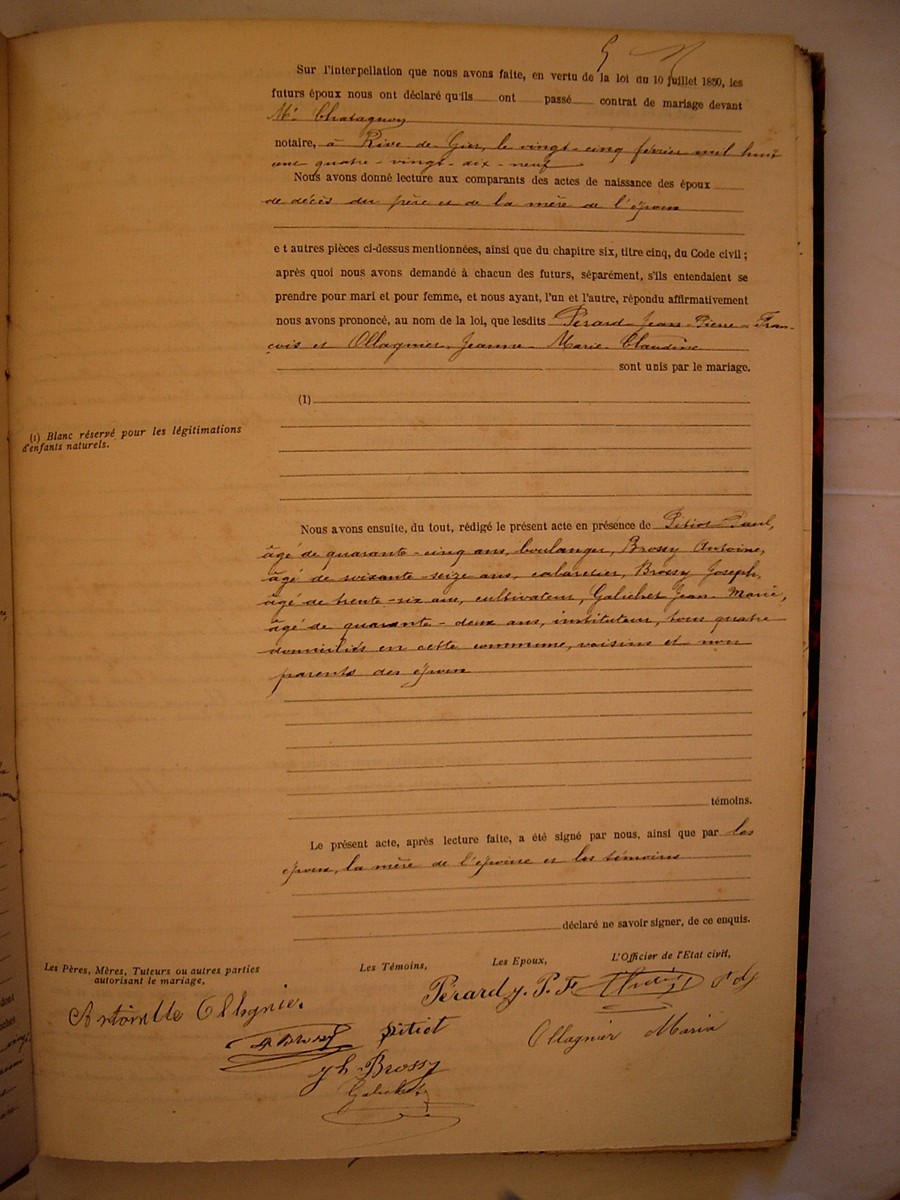 Sur l'interpellation que nous avons faite, en vertu de la loi du 10 juillet 1850, les
futurs époux nous ont déclaré qu'ils ont passé contrat de mariage devant
Me Chatagnon
notaire, à Rive de Gier, le vingt-cinq février mil huit
cent quatre-vingt-dix-neuf
Nous avons donné lecture aux comparants des actes de naissance des époux
de décès du père et de la mère de l'époux
et autres pièces ci-dessus mentionnées, ainsi que du chapitre six, titre cinq, du Code civil ;
après quoi nous avons demandé à chacun des futurs, séparément, s'ils entendaient se
prendre pour mari et pour femme, et nous ayant, l'un et l'autre, répondu affirmativement
nous avons prononcé, au nom de la loi, que lesdits Pérard Jean-Pierre-Fran-
çois et Ollagnier Jeanne-Marie-Claudine
sont unis par le mariage.
(1)
(1) Blanc réservé pour les légitimations
d'enfants naturels.
Nous avons ensuite, du tout, rédigé le présent acte en présence de Pitiot Paul,
âgé de quarante-cinq ans, boulanger, Brossy Antoine,
âgé de soixante-seize ans, cabaretier, Brossy Joseph,
âgé de trente-six ans, cultivateur, Galichet Jean-Marie,
âgé de quarante-deux ans, instituteur, tous quatre
domiciliés en cette commune, voisins et non
parents des époux
témoins.
Le présent acte, après lecture faite, a été signé par nous, ainsi que par les
époux, la mère de l'épouse et les témoins
déclaré ne savoir signer, de ce enquis.
Les Pères, Mères, Tuteurs ou autres parties
autorisant le mariage,
Les Témoins,
Les Epoux,
L'Officier de l'Etat civil,
Ollagnier
Pérard J. P. F
A Brossy
pitiot
Ollagnier Maria
Jh Brossy
Galichet